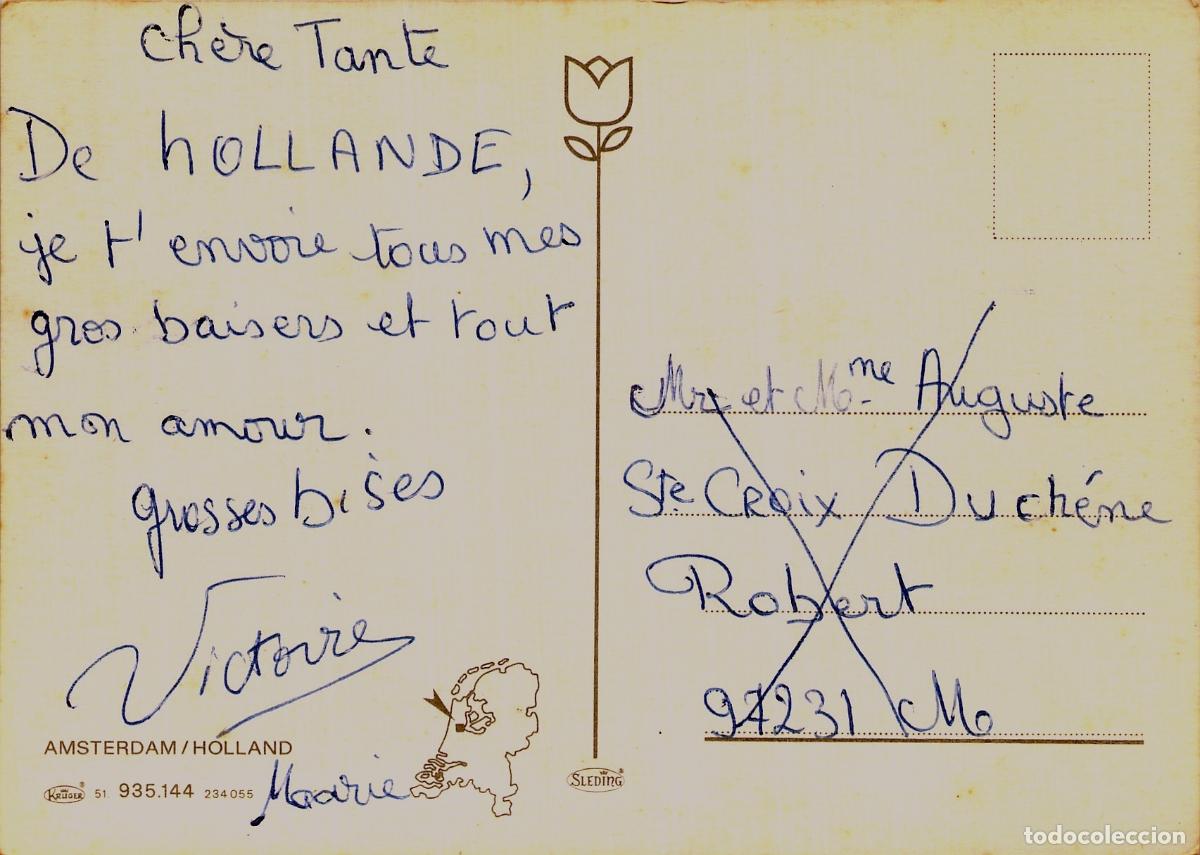 Chère Tante
De HOLLANDE,
je t'envoie tous mes
gros baisers et tout
mon amour.
grosses bises
Victoire
Marie
AMSTERDAM/HOLLAND
KRÜGER 51 935.144 234055
SLEDING
Mr et Mme Auguste
Ste CROIX Duchéne
Robert
97231 M
todocoleccion